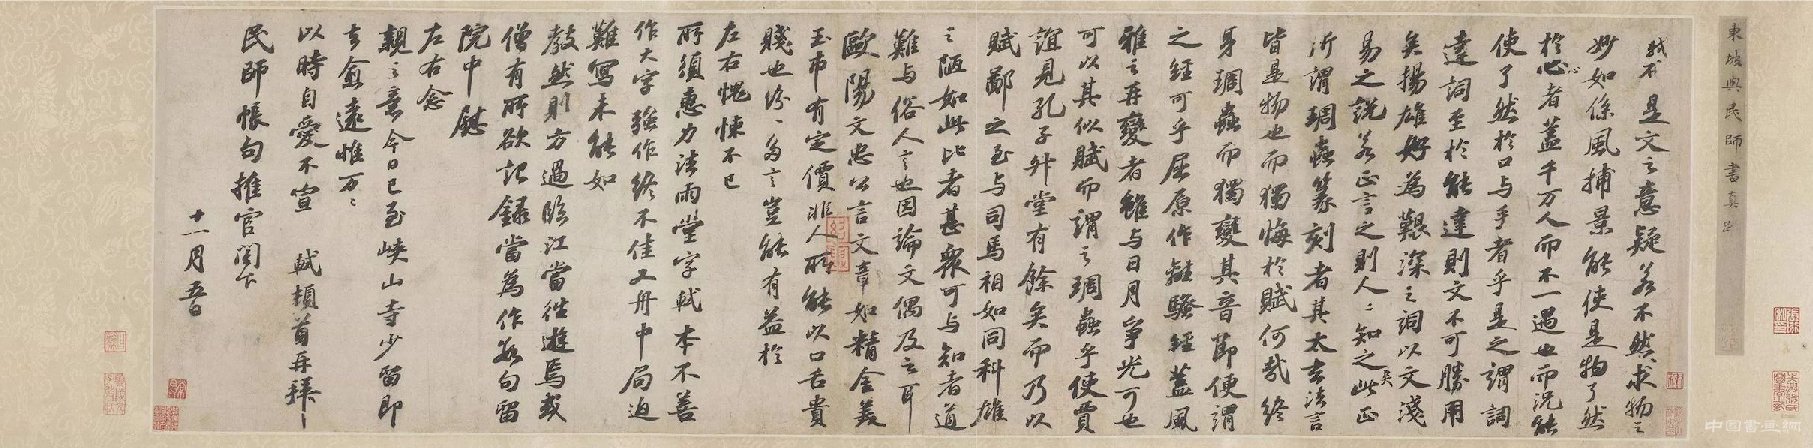 東坡與民師書真跡
我不是文之意疑若不然求物之
妙如係風捕景能使是物了然
於心者蓋千万人而不一遇也而況能
使了然於口与手者乎是之謂詞
達詞至於能達則文不可勝用
矣揚雄好為艱深之詞以文淺
易之說若正言之則人〻知之矣此正
所謂琱蟲篆刻者其太玄法言
皆是物也而獨悔於賦何哉終
身琱蟲而獨變其音節便謂
之經可乎屈原作離騷經蓋風
雅之再變者雖与日月爭光可也
可以其似賦而謂之琱蟲乎使賈
誼見孔子升堂有餘矣而乃以
賦鄙之至与司馬相如同科雄
之陋如此比者甚衆可与知者道
難与俗人言也因論文偶及之耳
歐陽文忠公言文章如精金美
玉市有定價非人所能以口舌貴
賤也紛〻多言豈能有益於
左右愧悚不已
所須惠力法雨堂字軾本不善
作大字強作終不佳又舟中局迫
難寫未能如
教然則方過臨江當往遊焉或
僧有所欲記錄當為作數句留
院中慰
左右念
親之意今日已至峽山寺少留即
去愈遠惟万〻
以時自愛不宣 軾頓首再拜
民師帳句推官閣下
十一月五日
中国書画网